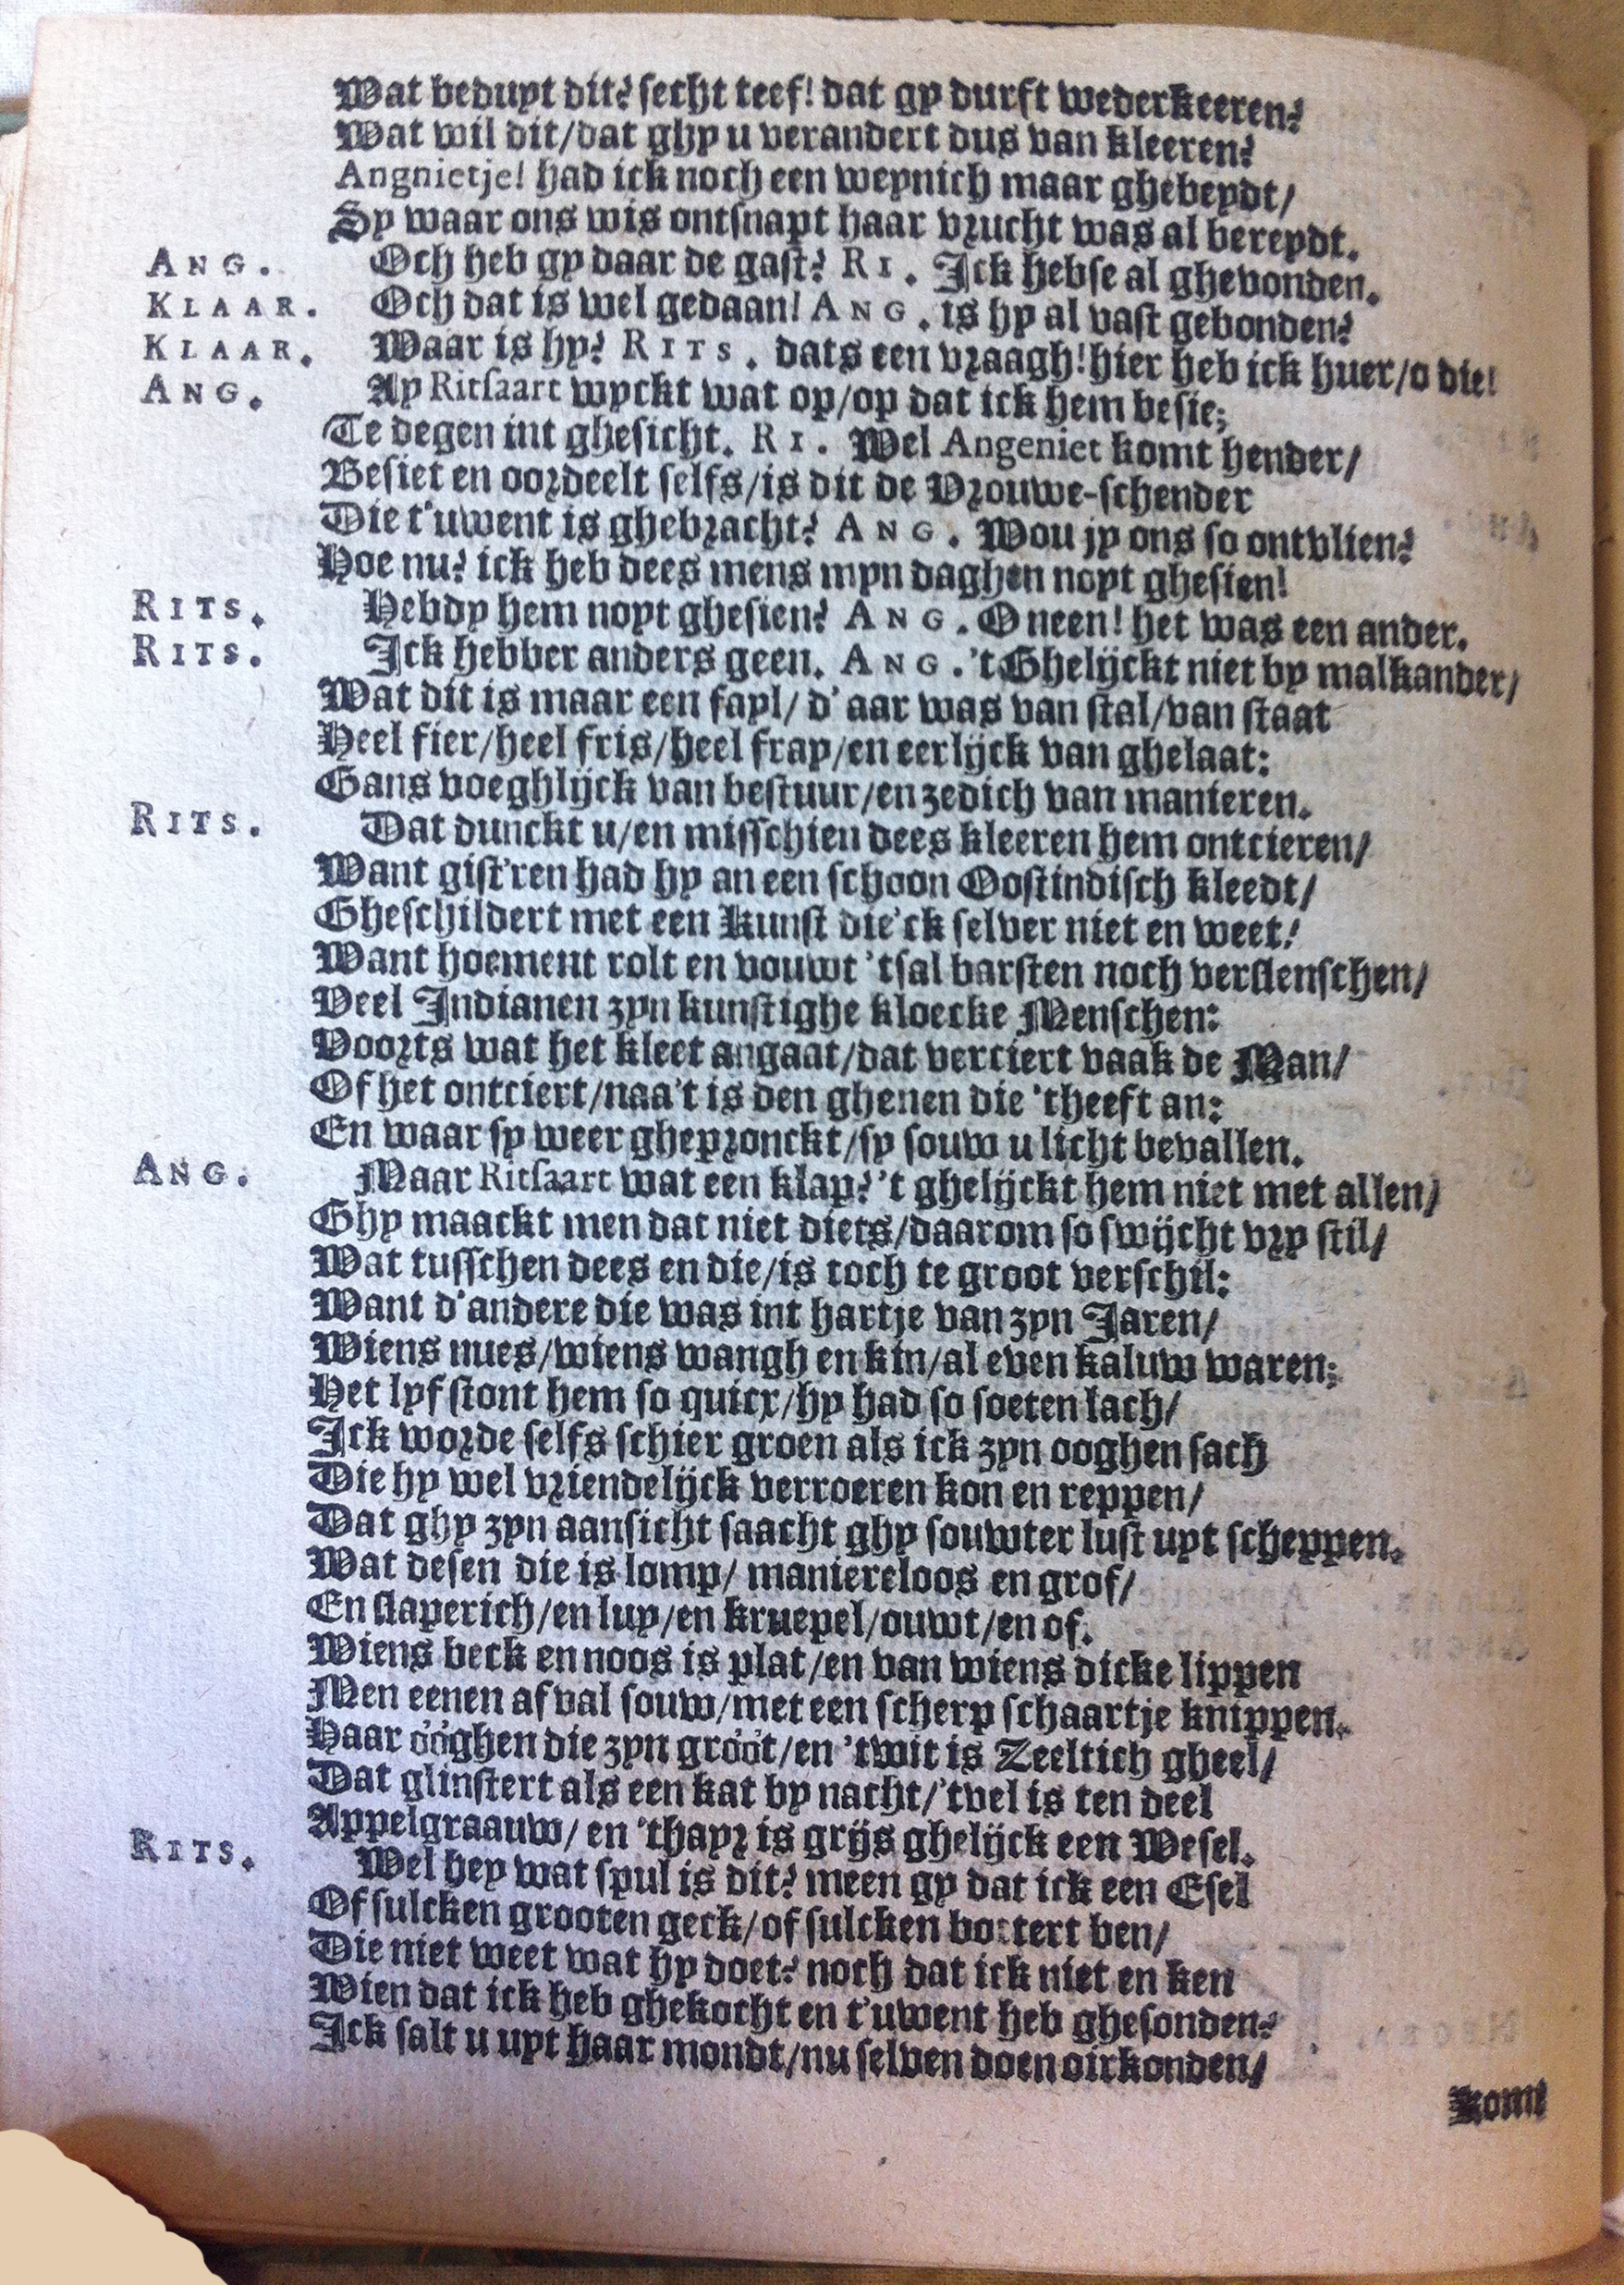 Wat beduyt dit? secht teef! dat gy durft wederkeeren?
Wat wil dit/dat ghy u verandert dus van kleeren?
Angnietje! had ick noch een weynich maar ghebeydt/
Sy waar ons wis ontsnapt haar vrucht was al bereydt.
ANG. Och heb gy daar de gast? RI. Ick hebse al ghevonden.
KLAAR. Och dat is wel gedaan! ANG. is hy al vast gebonden?
KLAAR. Waar is hy? RITS. dats een vraagh! hier heb ick huer/o die!
ANG. Ay Ritsaart wyckt wat op/op dat ick hem besie;
Te degen int ghesicht. RI. Wel Angeniet komt hender/
Besiet en oordeelt selfs/is dit de Vrouwe-schender
Die t'uwent is ghebracht? ANG. Wou jy ons so ontvlien?
Hoe nu? ick heb dees mens myn daghen noyt ghesien!
RITS. Hebdy hem noyt ghesien? ANG. O neen! het was een ander.
RITS. Ick hebber anders geen. ANG. 't Ghelijckt niet by malkander/
Wat dit is maar een fayl/ d'aar was van stal/van staat
Heel fier/heel fris/heel fray/en eerlijck van ghelaat:
Gans voeghlijck van bestuur/en zedich van manieren.
RITS. Dat dunckt u/en misschien dees kleeren hem ontcieren/
Want gist'ren had hy an een schoon Oostindisch kleedt/
Gheschildert met een kunst die'ck selver niet en weet!
Want hoement rolt en vouwt 'tsal barsten noch verslenschen/
Veel Indianen zyn kunstighe kloecke Menschen:
Voorts wat het kleet angaat/dat verciert vaak de Man/
Of het ontciert/naa't is den ghenen die 'theeft an:
En waar sy weer ghepronckt/sy souw u licht bevallen.
ANG. Maar Ritsaart wat een klap? 't ghelijckt hem niet met allen/
Ghy maackt men dat niet diets/daarom so swijcht vry stil/
Wat tusschen dees en die/is toch te groot verschil:
Want d'andere die was int hartje van zyn Jaren/
Wiens nues/wiens wangh en kin/al even kaluw waren;
Het lyf stont hem so quicx/hy had so soeten lach/
Ick worde selfs schier groen als ick zyn ooghen sach
Die hy wel vriendelijck verroeren kon en reppen/
Dat ghy zyn aansicht saacht ghy souwter lust uyt scheppen.
Wat desen die is lomp/ maniereloos en grof/
En slaperich/en luy/en kruepel/ouwt/en of.
Wiens beck en noos is plat/en van wiens dicke lippen
Men eenen afval souw/met een scherp schaartje knippen.
Haar óóghen die zyn gróót/en 'twit is Zeeltich gheel/
Dat glinstert als een kat by nacht/'tvel is ten deel
Appelgraauw/ en 'thayr is grijs ghelijck een Wesel.
RITS. Wel hey wat spul is dit? meen gy dat ick een Esel
Of sulcken grooten geck/of sulcken bottert ben/
Die niet weet wat hy doet? noch dat ick niet en ken
Wien dat ick heb ghekocht en t'uwent heb ghesonden?
Ick salt u uyt haar mondt/nu selven doen oirkonden/
Komt